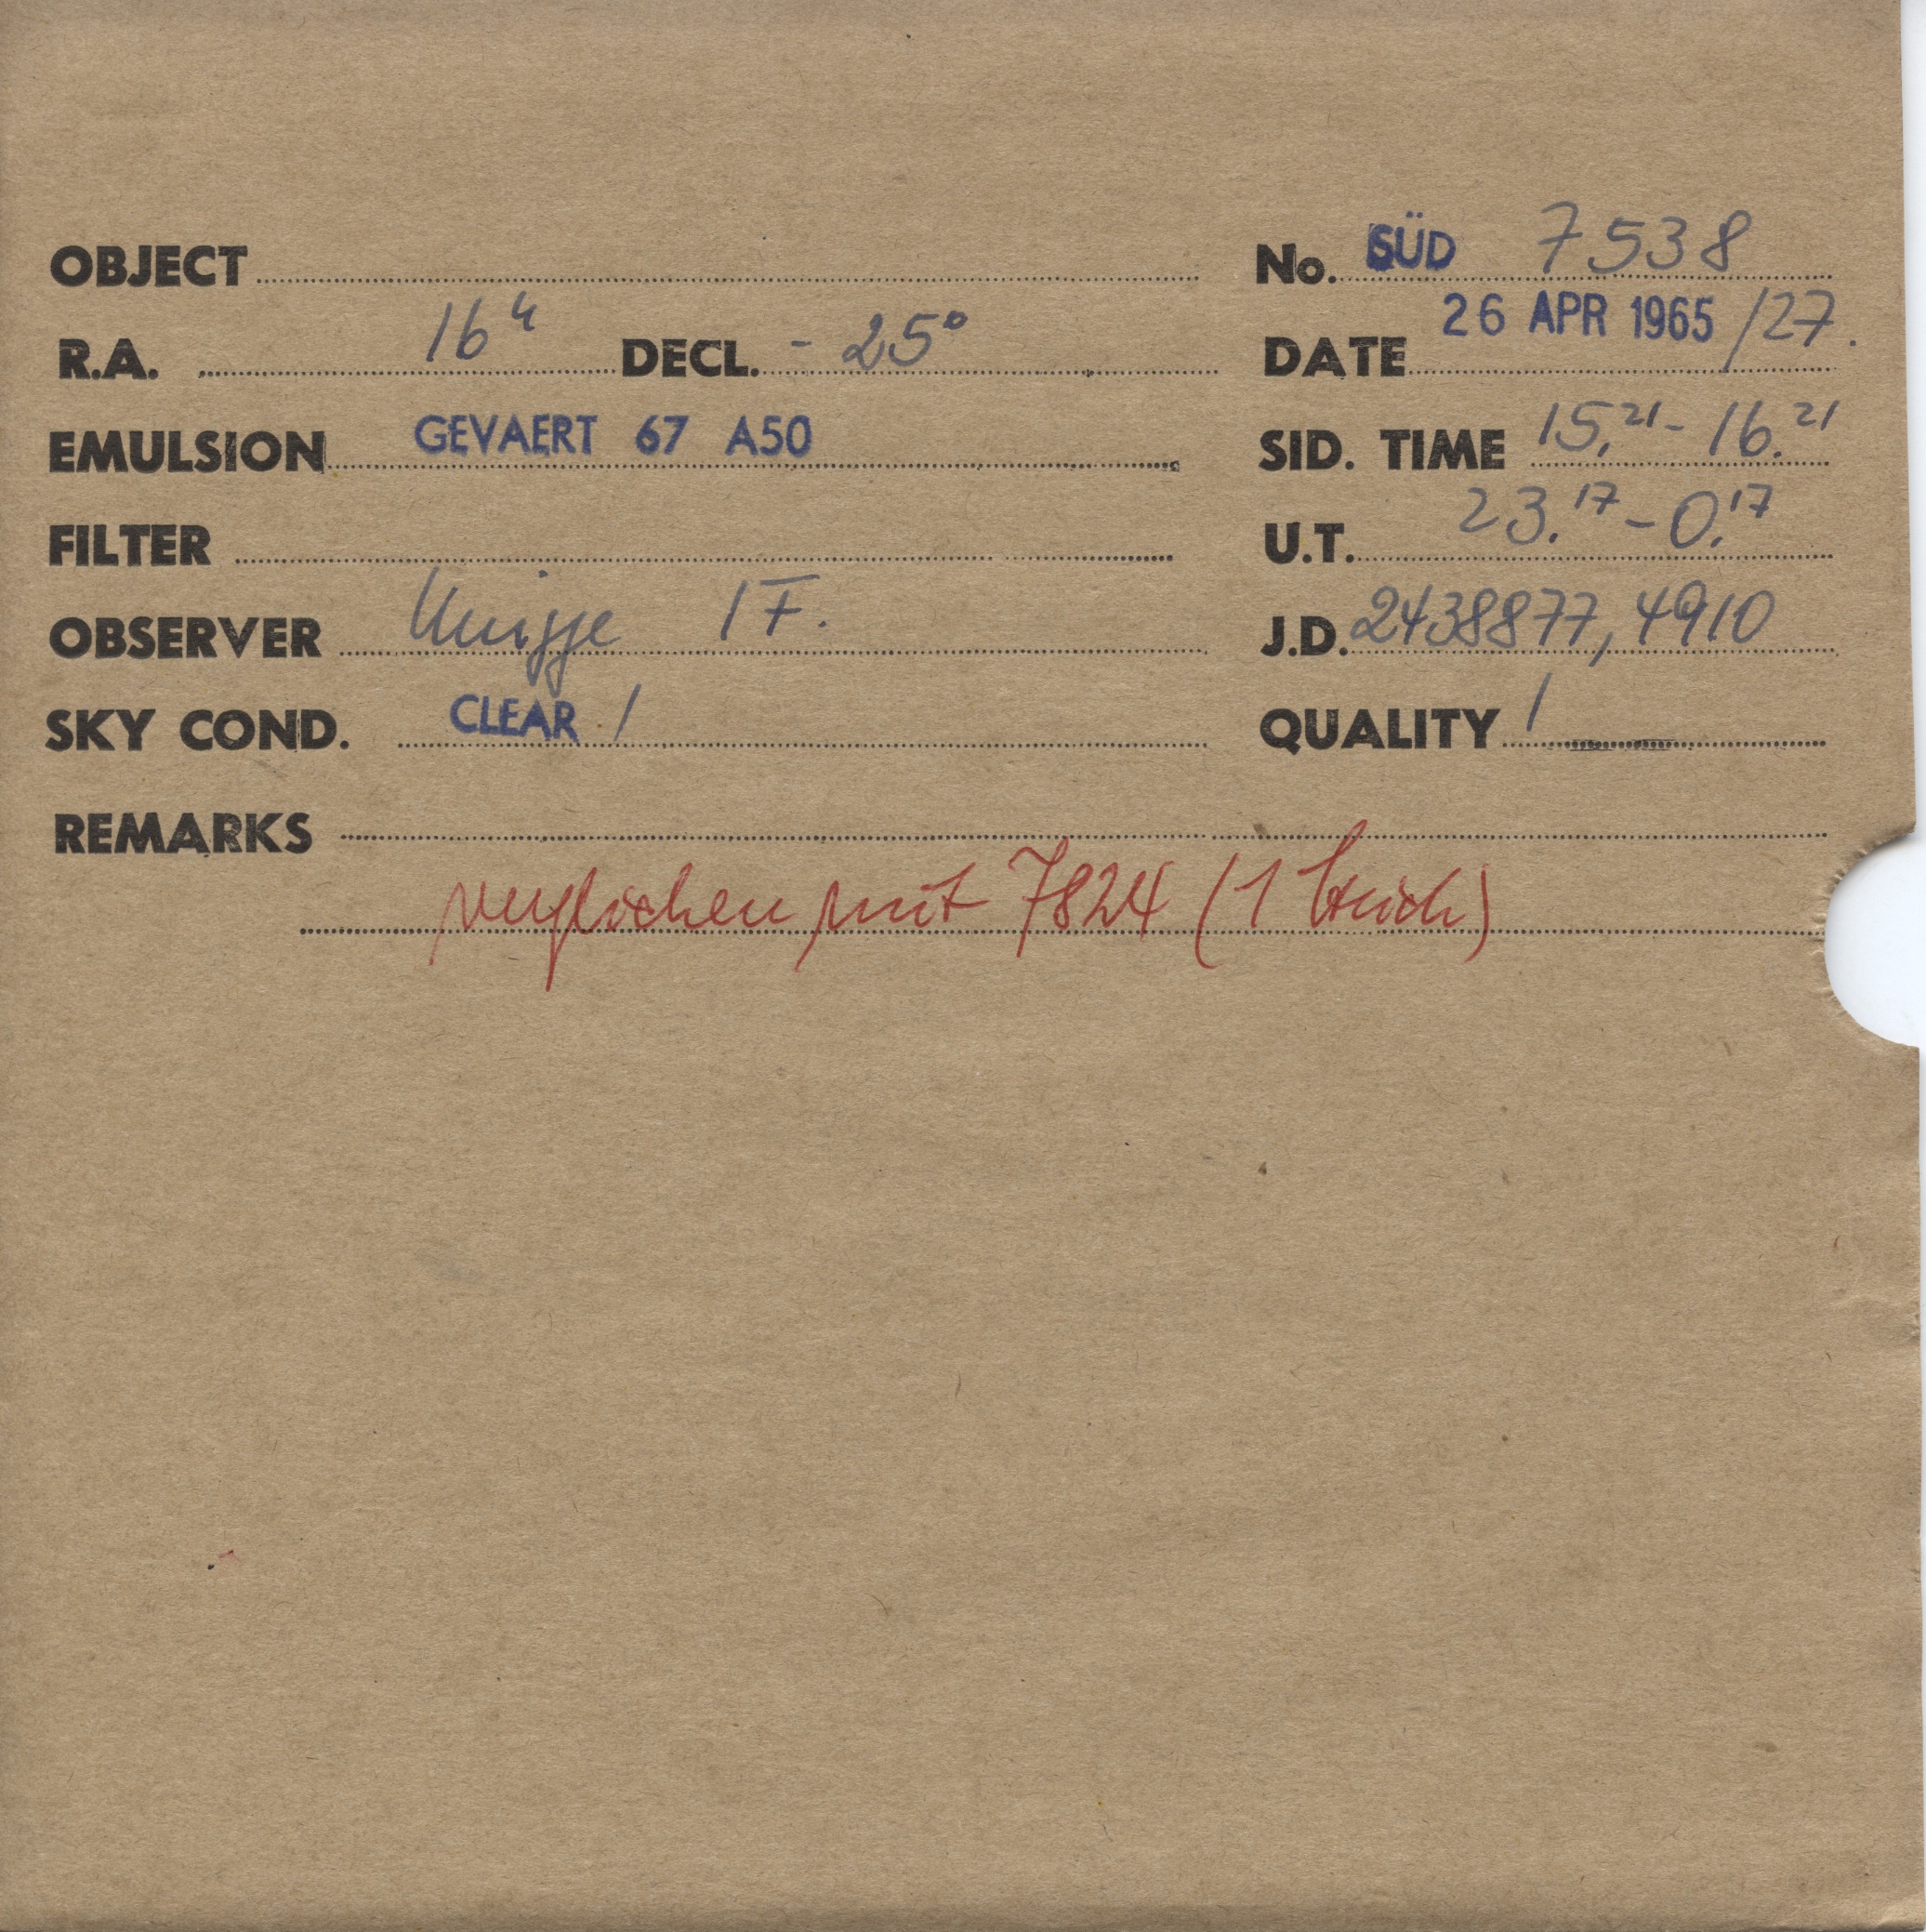 OBJECT No. SÜD 7538
R.A. 16h DECL. - 25° DATE 26 APR 1965 /27.
EMULSION GEVAERT 67 A50 SID. TIME 15.21 - 16.21
FILTER U.T. 23.17 - 0.17
OBSERVER J.D. 2438877,4910
SKY COND. CLEAR 1 QUALITY 1
REMARKS
verglichen mit 7824 (1 Strich)